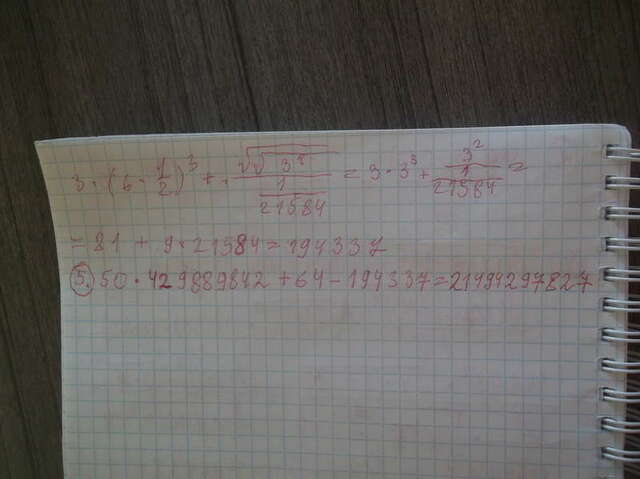 3 · (6 · 1/2)³ + √√3⁸ / (1/21584) = 3 · 3³ + 3² / (1/21584) =
= 81 + 9 · 21584 = 194337
5. 50 · 429889842 + 64 - 194337 = 21494297827